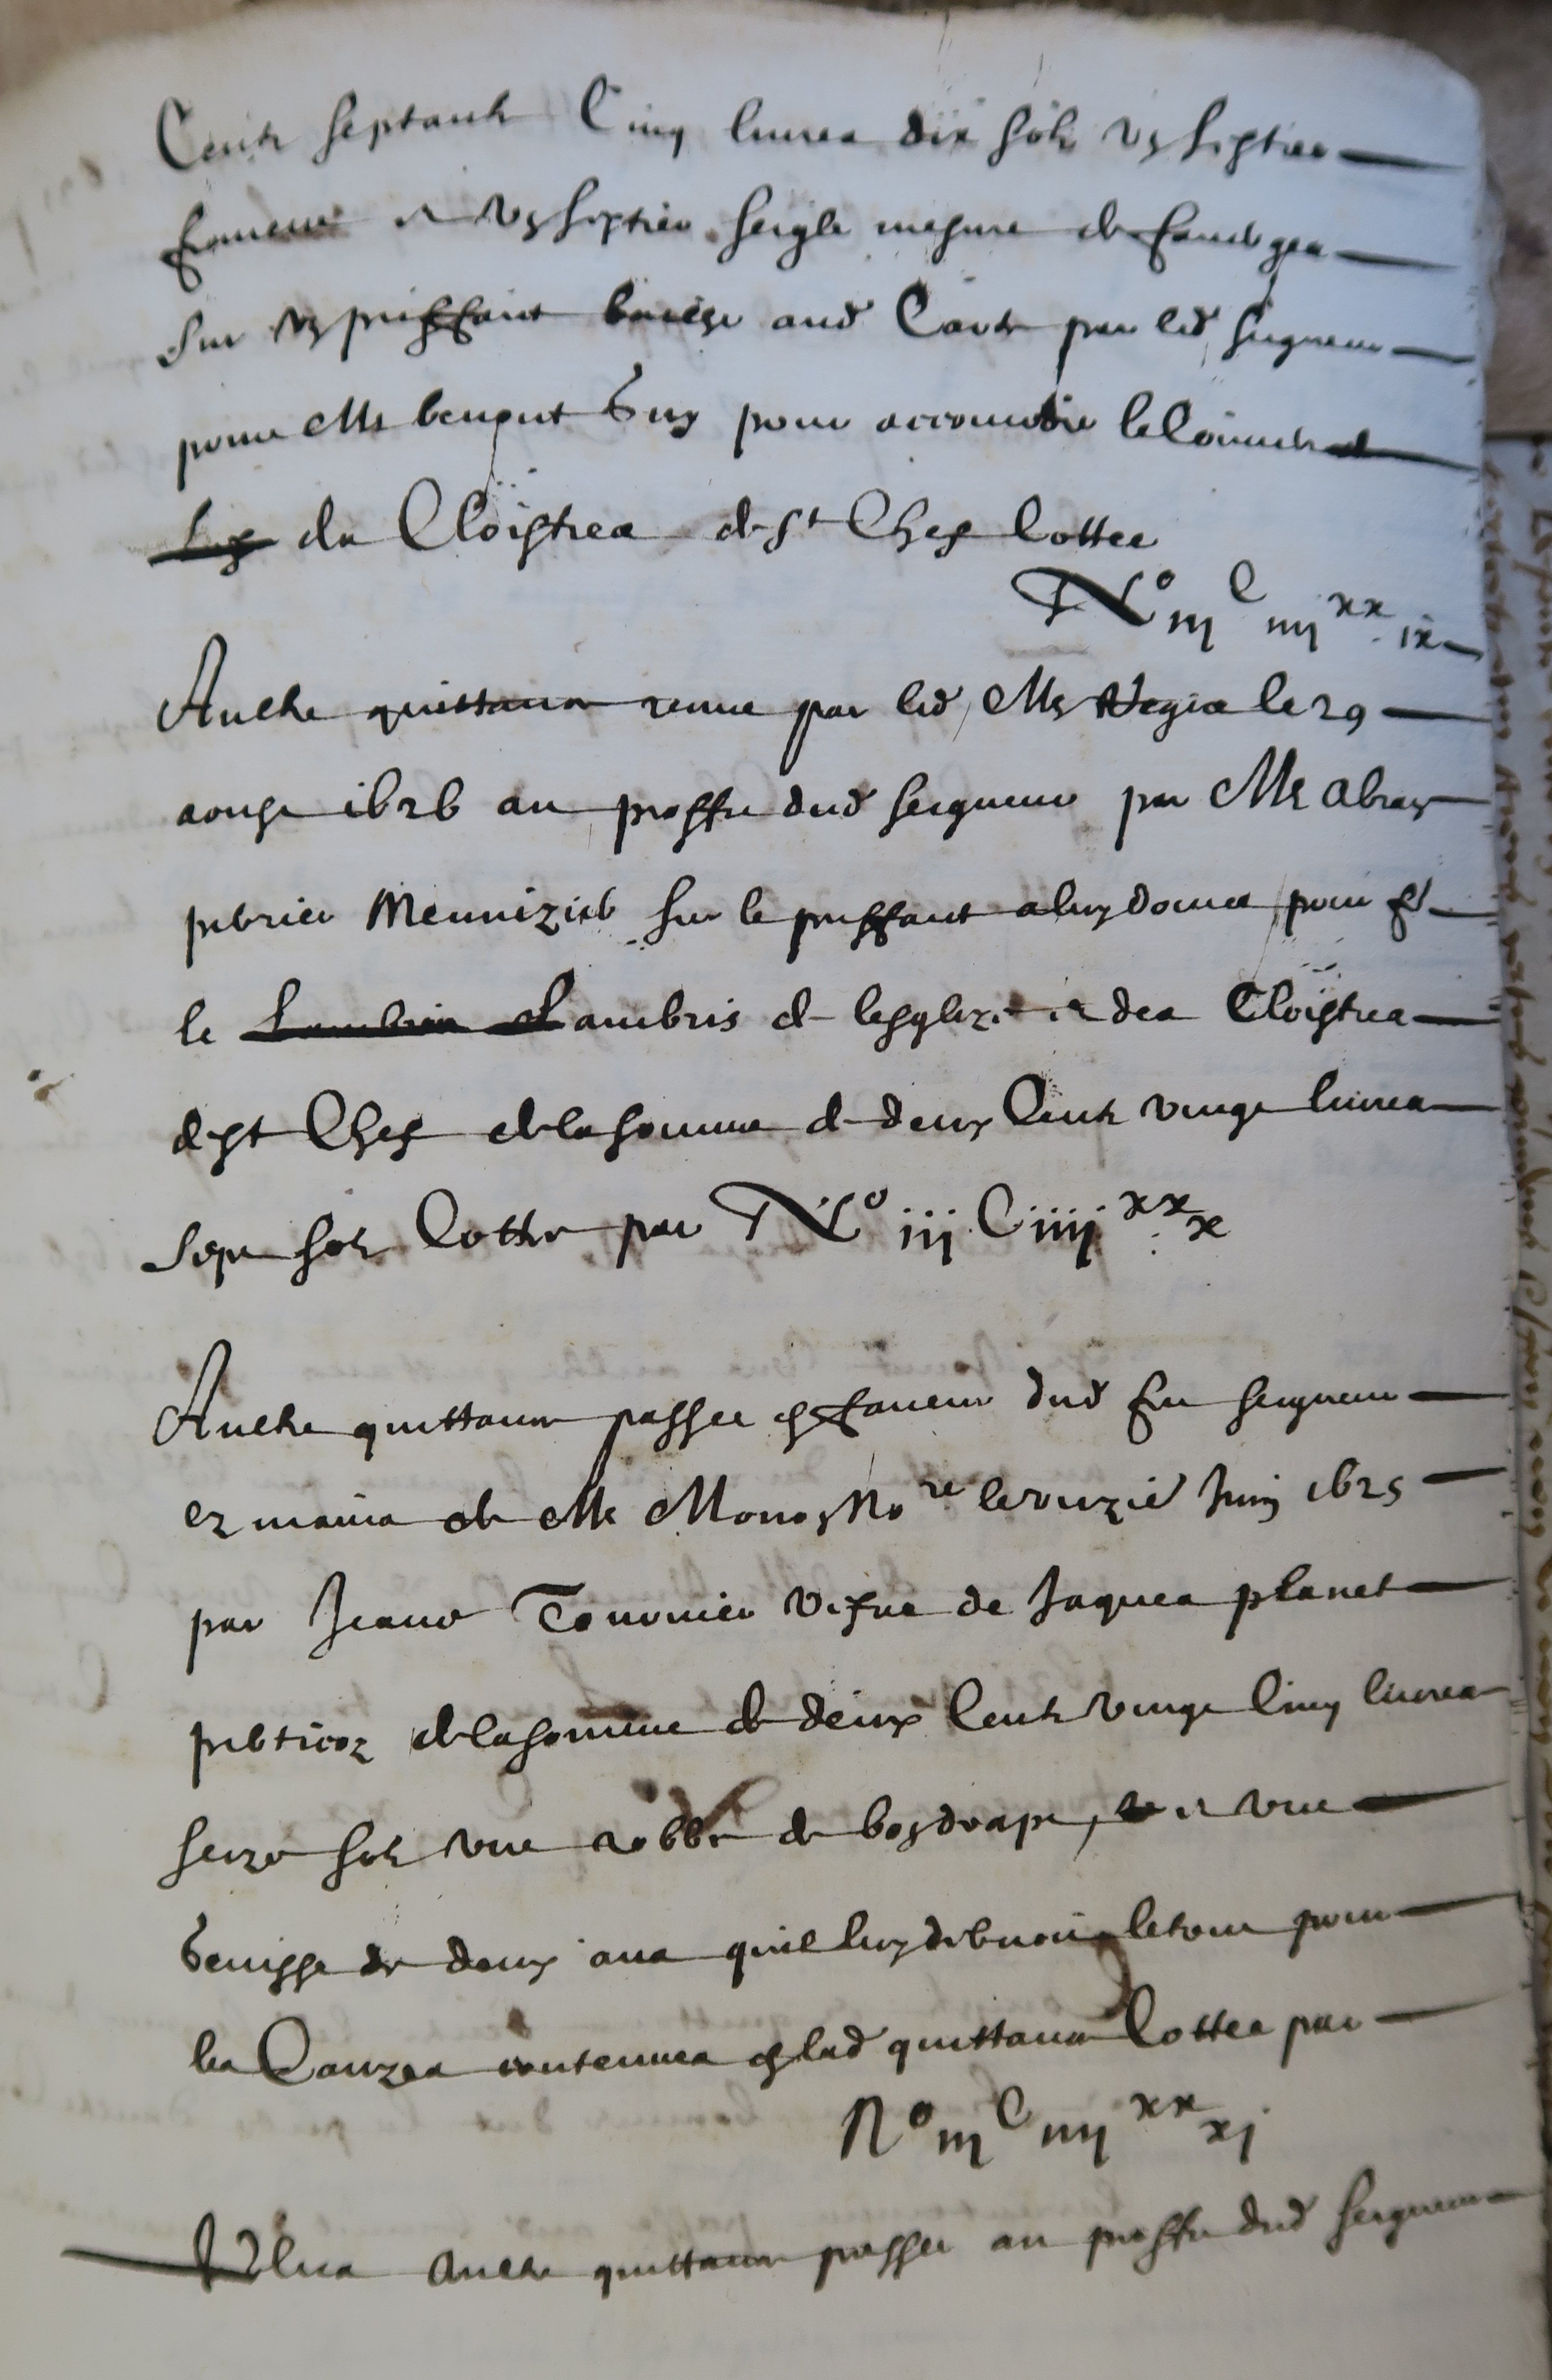 Cente septante Cinq liures dix solz ung septier
froment et ung septier seigle mesure de
sur ung prisffaict baillé aud Cante par led seigneur
pour Me benoict Guy pour accomodé le Couuert
des Cloistres de St Chef Cottee
No iijC iiijxx ix
Aultre quittance receue par led Me le 29
aougt 1626 au proffit dud seigneur par Me Abray
Mennizier sur le prisffaict a luy donné pour fe
le Lambris de lesglize et des Cloistres
de St Chef de la somme de deux Cents vingt liures
sept solz Cottée par No iijC iiijxx x
Aultre quittance passee en faueur dud feu seigneur
ez mains de Me Monoz Nore le unzie Juin 1625
par Jeanne Tournier vefue de Jaques planet
de la somme de deux Cents vingt Cinq liures
seize solz une robbe de bon drap, et une
Genisse de deux ans quil luy debuoit le tout pour
les Causes contenues en lad quittance Cottee par
No iijC iiijxx xj
Plus Aultre quittance passee au proffit dud seigneur